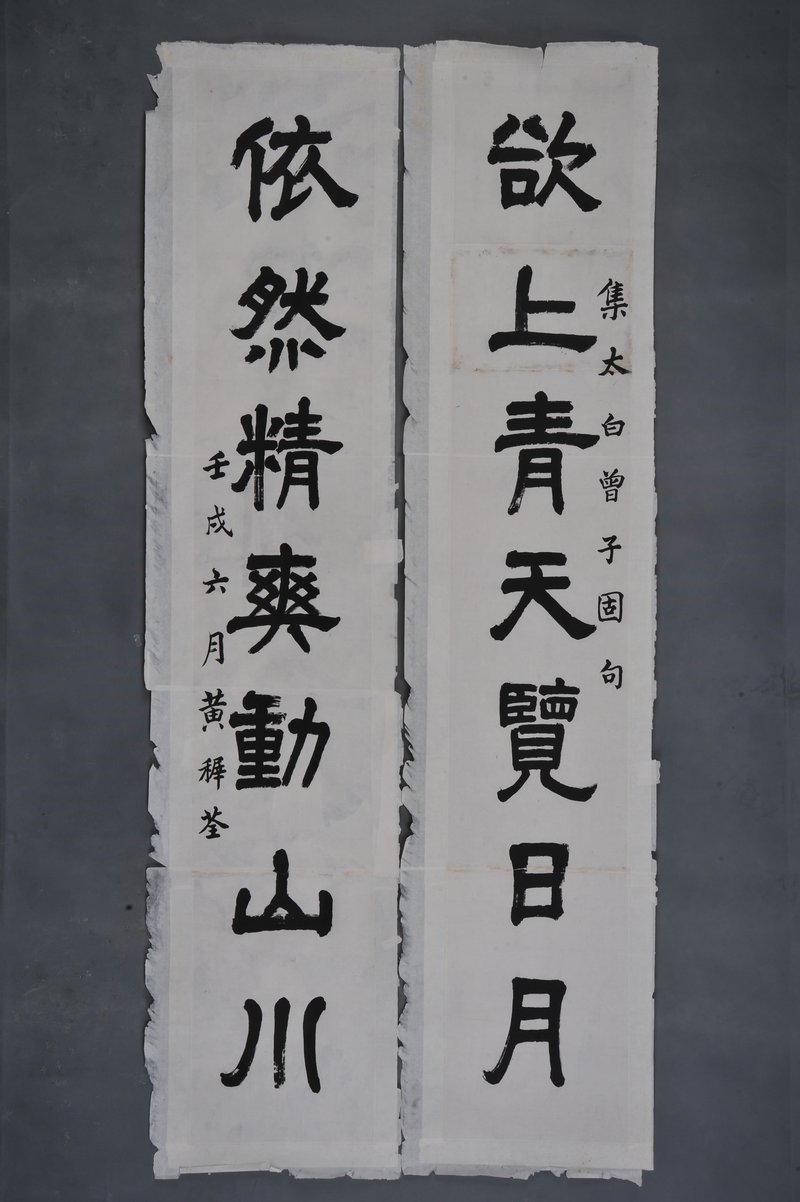 集太白曾子固句
欲上青天覽日月
依然精爽動山川
壬戌六月黃稺荃